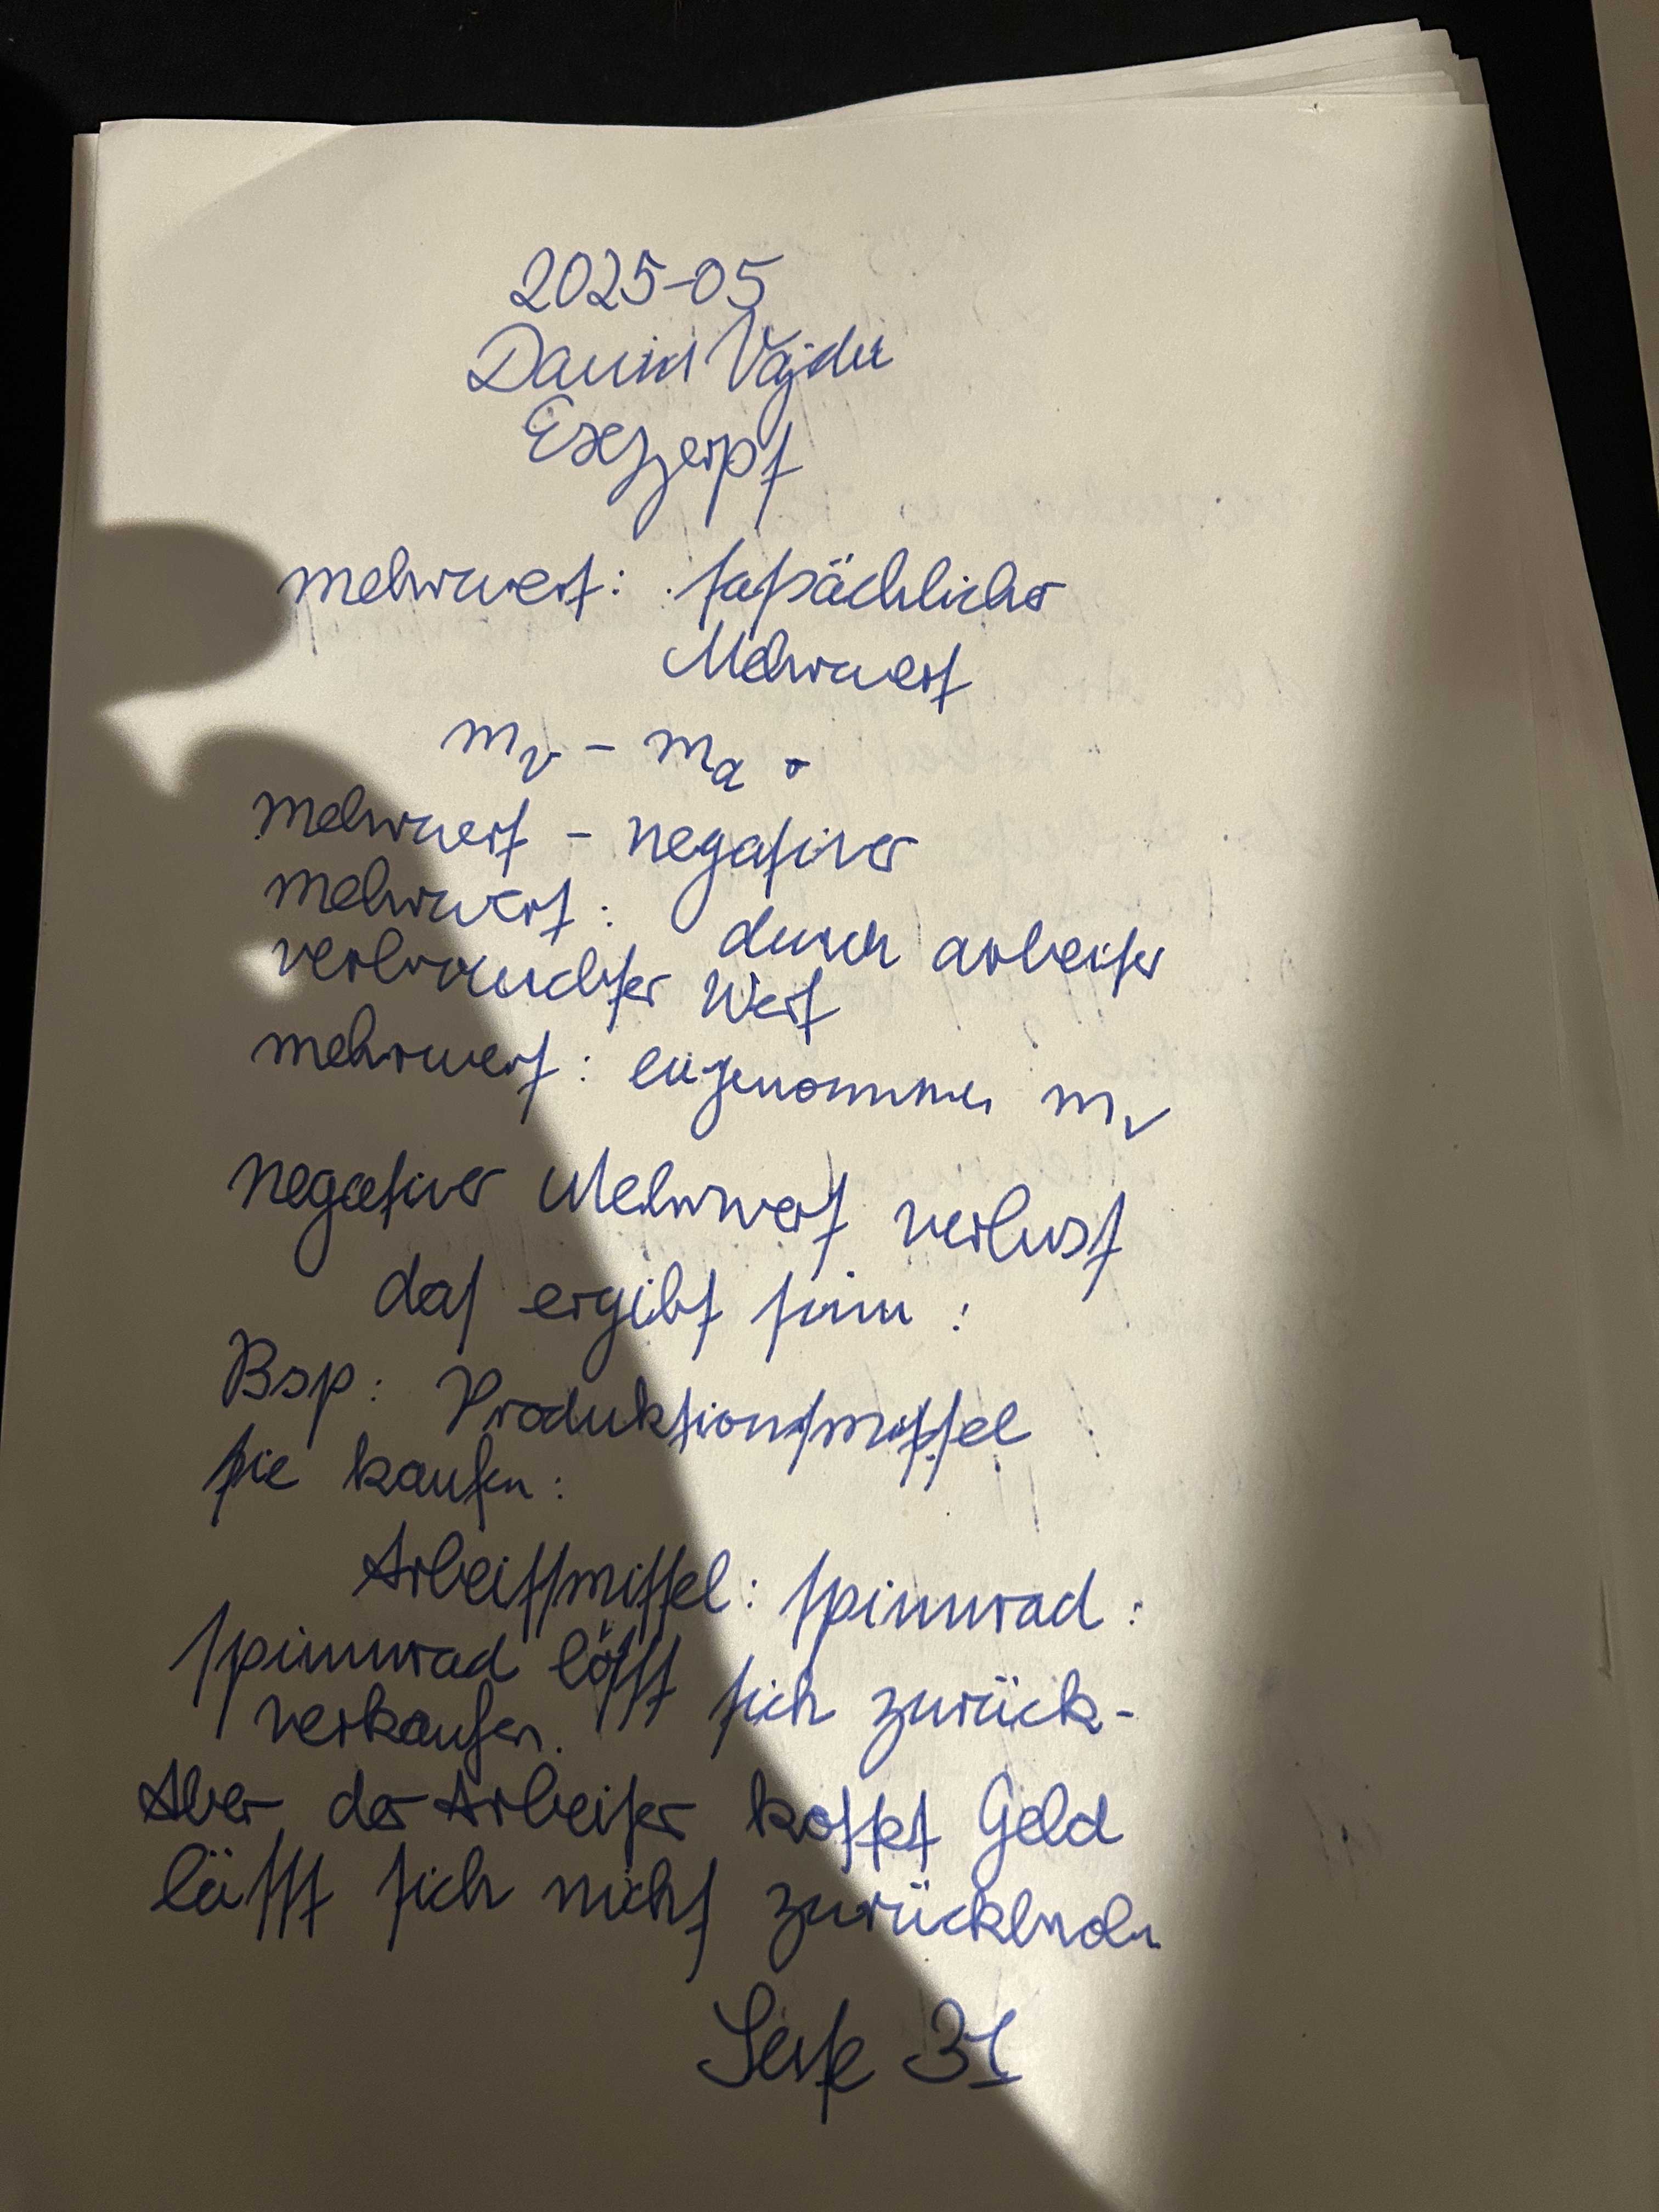 2025-05
David Vajda
Exszerpt
mehrwert: tatsächlicher
Mehrwert
m_v - m_a.
mehrwert - negativer
mehrwert: durch arbeiter
verbrauchter Wert
mehrwert: eingenommen m_v
negativer Mehrwert verlust
das ergibt sinn:
Bsp: Produktionsmittel
sie kaufen:
Arbeitsmittel: spinnrad:
spinnrad lässt sich zurück-
verkaufen.
Aber der Arbeiter kostet Geld
lässt sich nicht
Seite 31